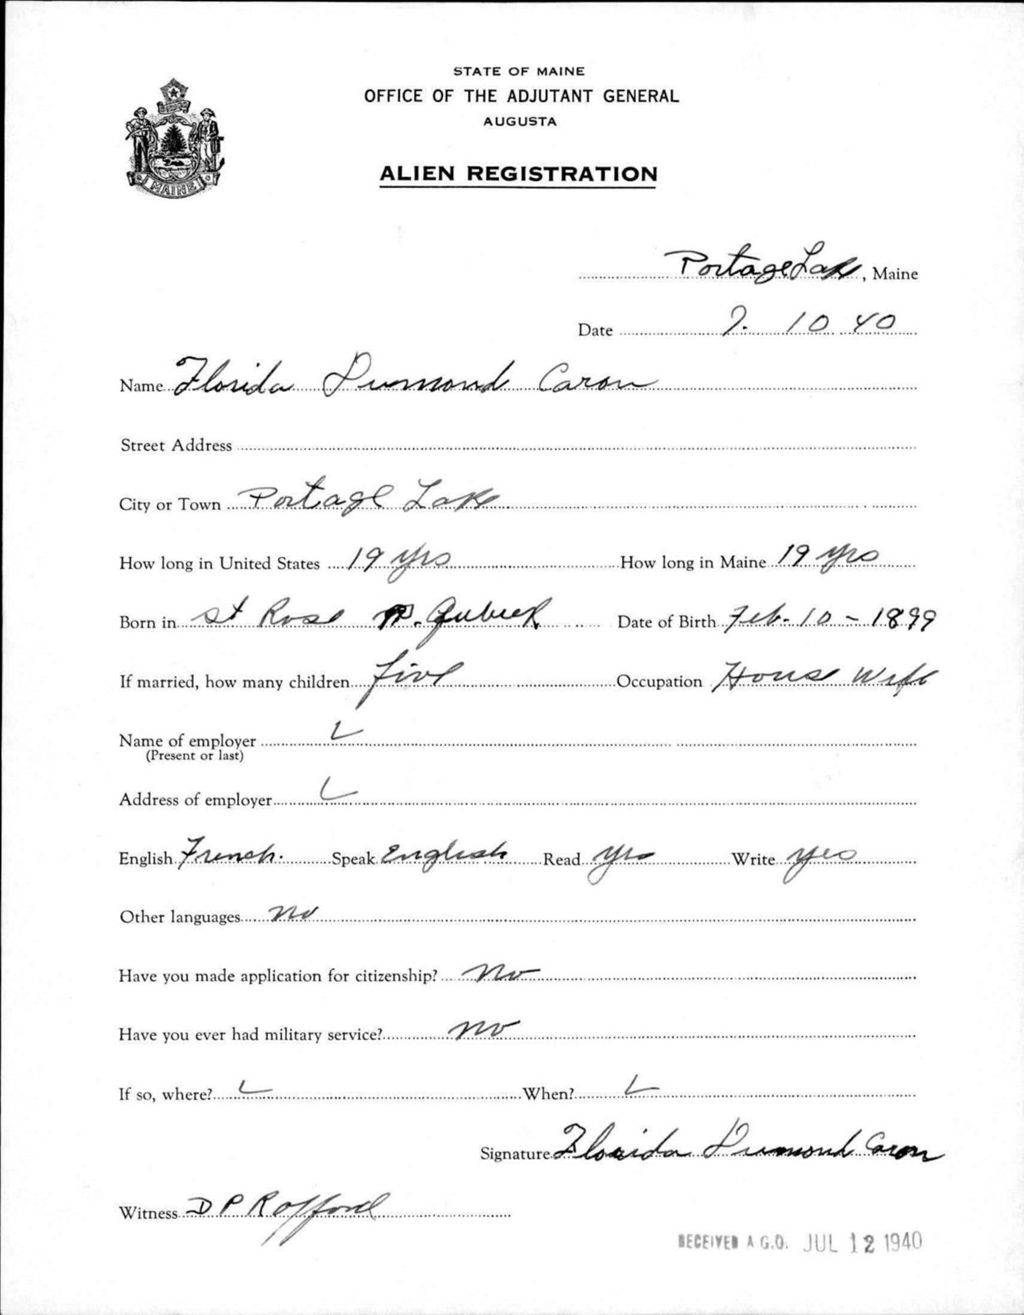 STATE OF MAINE
OFFICE OF THE ADJUTANT GENERAL
AUGUSTA
ALIEN REGISTRATION
MAINE
Portage Lake, Maine
Date 7. 10 40
Name Florida Dumond Caron
Street Address
City or Town Portage Lake
How long in United States 19 yrs How long in Maine 19 yrs
Born in St Rose P. Quebec Date of Birth Feb. 10 - 1899
If married, how many children five Occupation House Wife
Name of employer L
(Present or last)
Address of employer L
English French. Speak English Read yes Write yes
Other languages no
Have you made application for citizenship? No
Have you ever had military service? no
If so, where? L When? L
Signature Florida Dumond Caron
Witness D P Rafford
RECEIVED A.G.O. JUL 12 1940